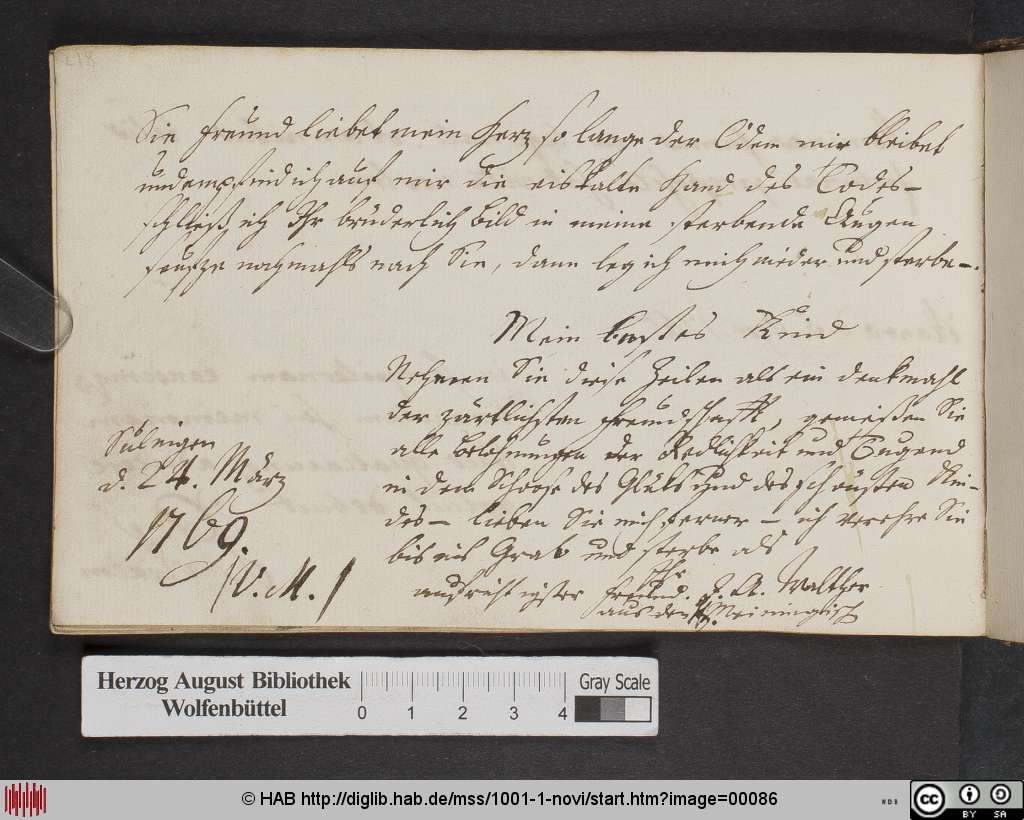 218
Sie Freund liebet mein Herz so lange der Odem mir bleibet
und empfind ich auf mir die eiskalte Hand des Todes –
schließ ich Ihr brüderlich Bild in meine sterbende Augen
seufze nochmahls nach Sie, dann leg ich mich nieder und sterbe –.
Mein bestes Kind
Nehmen Sie diese Zeilen als ein denkmahl
der zärtlichsten Freundschafft, genießen Sie
alle Belohnungen der Redlichkeit und Tugend
in dem Schoose des Glüks und des schönsten Kin-
des – lieben Sie mich ferner – ich verehre Sie
bis ins Grab und sterbe als
Ihr
aufrichtigster Freund. J. A. Walther
aus dem Meiningisch
Sülmigen
d. 24. März
1769.
/V. M./
Herzog August Bibliothek
Wolfenbüttel
0 1 2 3 4
Gray Scale
© HAB http://diglib.hab.de/mss/1001-1-novi/start.htm?image=00086
cc BY SA